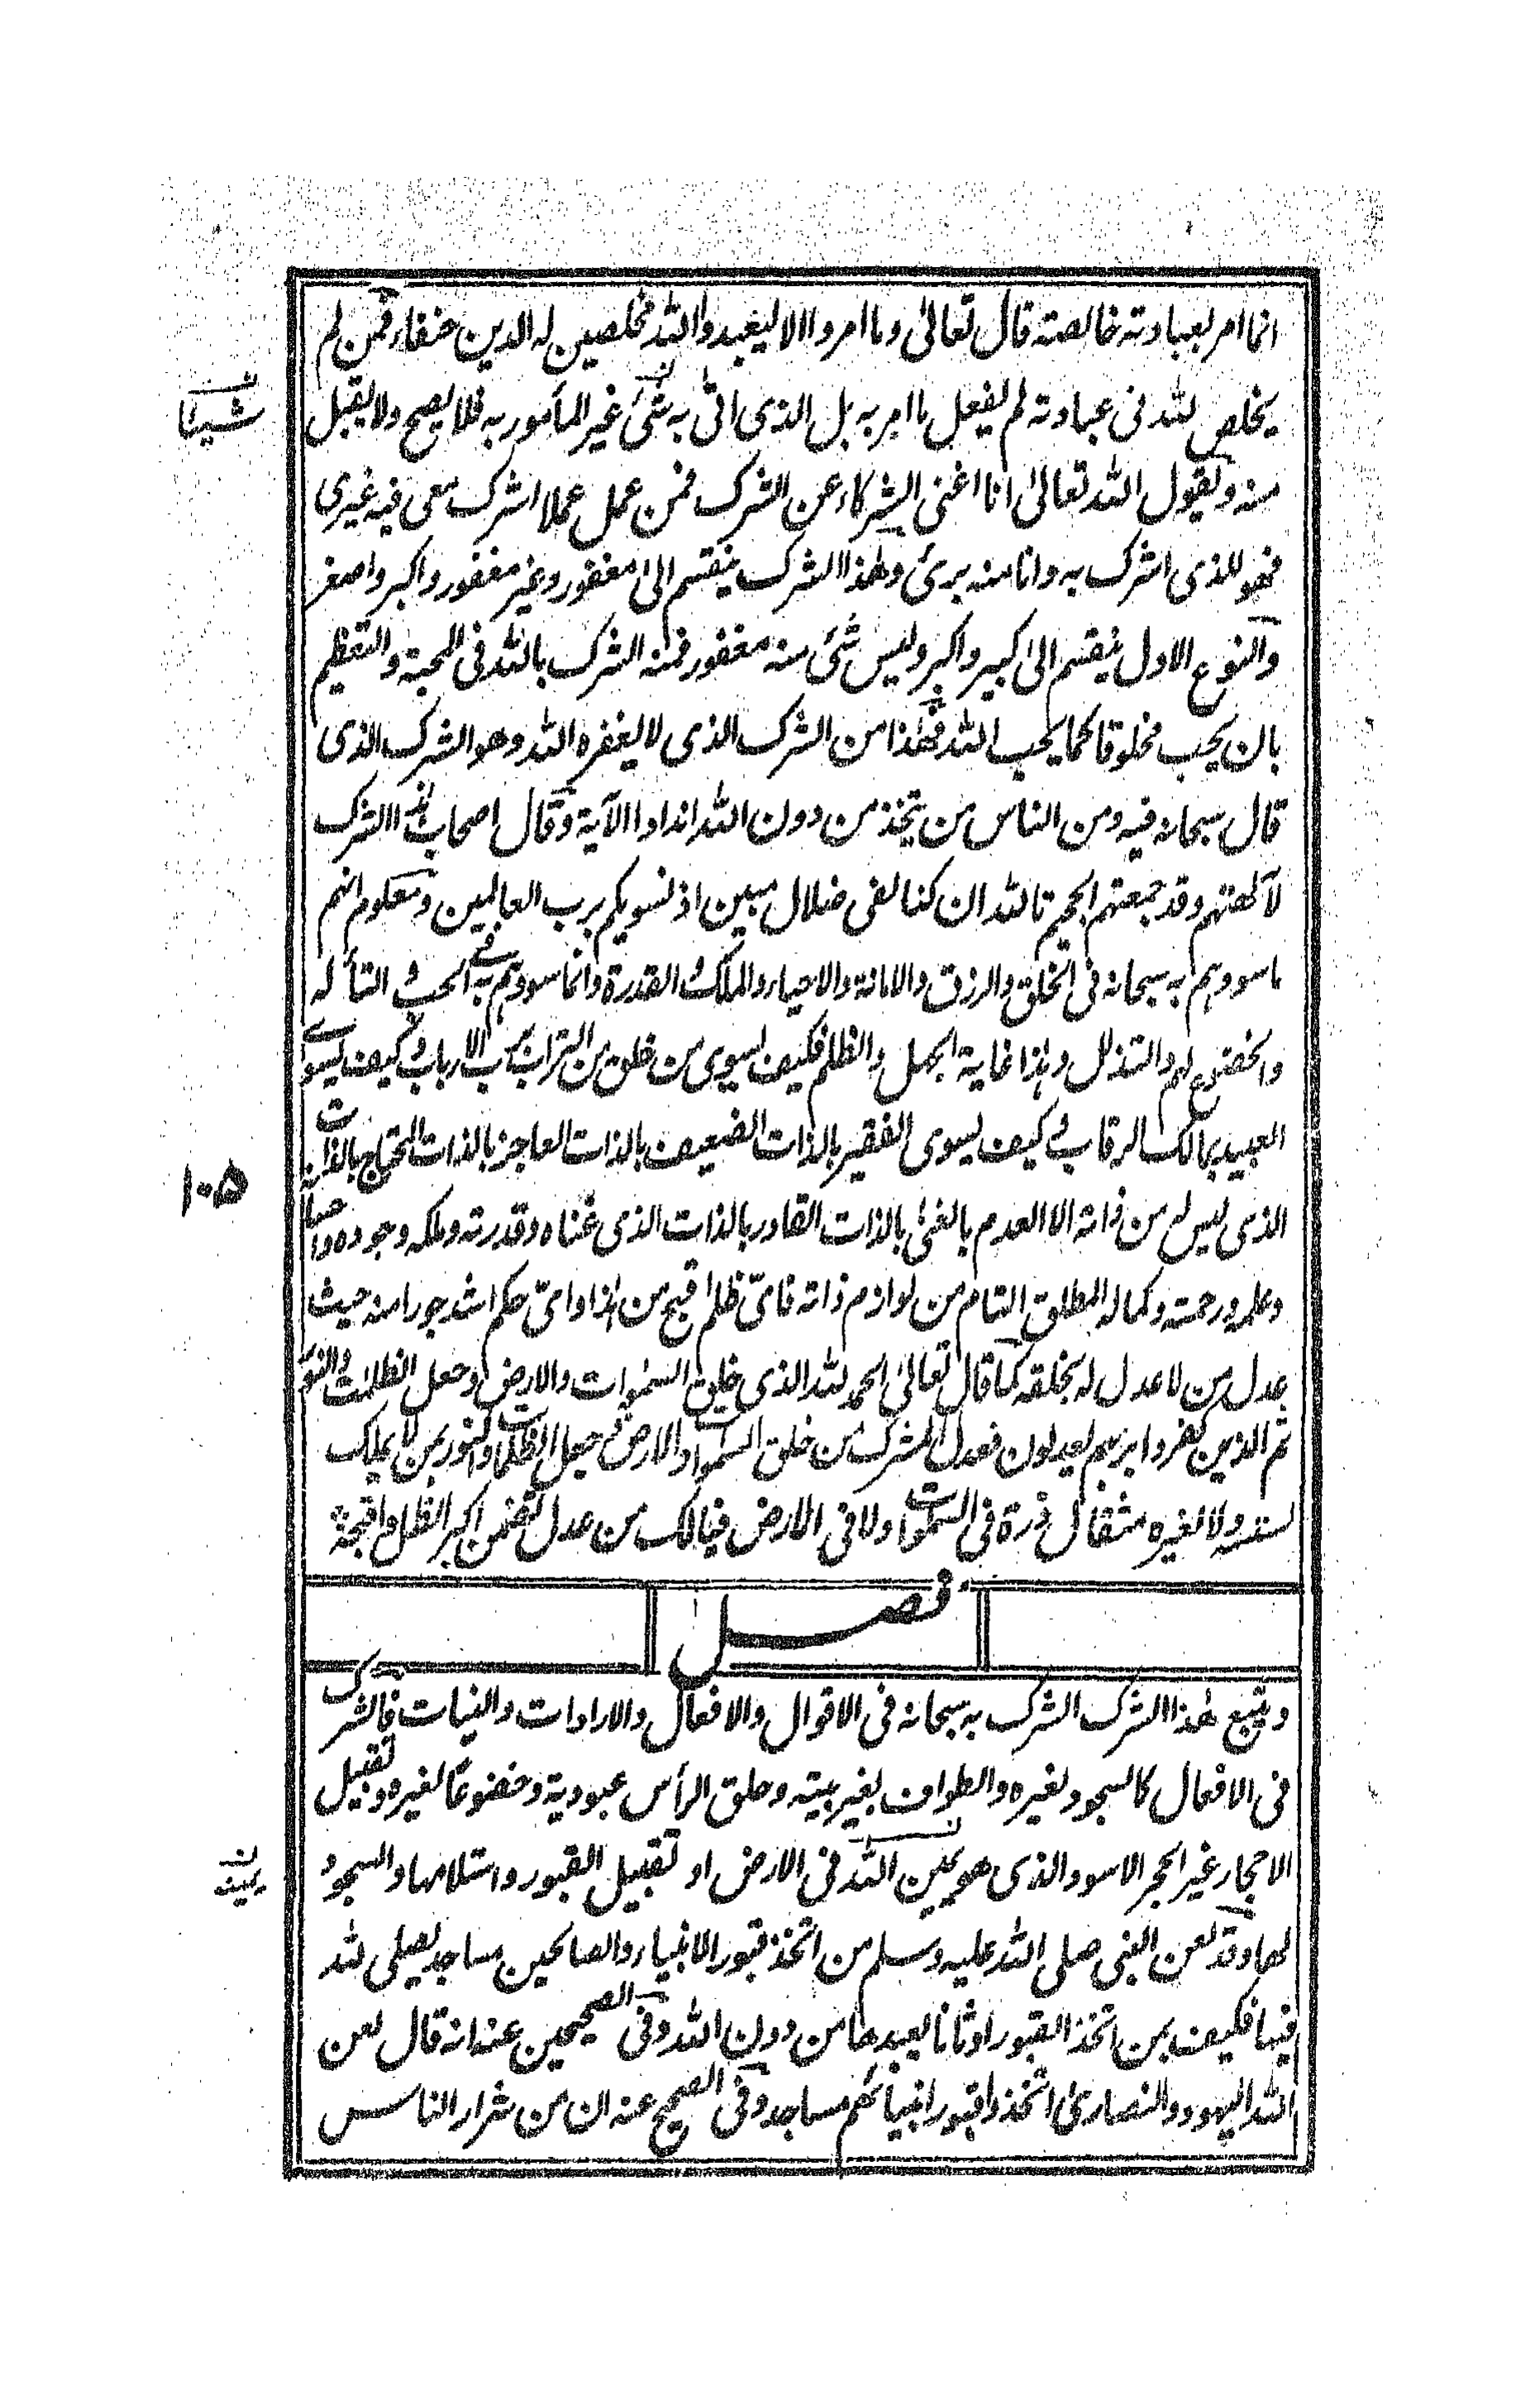 انما امر بعبادته خالصته قال تعالیٰ وما امروا الا ليعبدوا الله مخلصين له الدين حنفاء فمن لم
يخلص لله فى عبادته لم يفعل ما امر به بل الذى اتى به شئ غير المأمور به فلا يصح ولا يقبل
شيئا
منه ويقول الله تعالىٰ انا اغنى الشركاء عن الشرك فمن عمل عملا اشرك معى فيه غيرى
فهو للذى اشرك به وانا منه برئ وهذا الشرك ينقسم الىٰ مغفور وغير مغفور واكبر واصغر
والنوع الاول ينقسم الىٰ كبير واكبر وليس شئ منه مغفور فمنه الشرك بالله فى المحبة والتعظيم
بان يحب مخلوقا كما يحب الله فهذا من الشرك الذى لا يغفره الله وهو الشرك الذى
قال سبحانه فيه ومن الناس من يتخذ من دون الله اندادا الآية وقال اصحاب هذا الشرك
لآلهتهم وقد جمعتهم الجحيم تالله ان كنا لفى ضلال مبين اذ نسويكم برب العالمين ومعلوم انهم
ما سووهم به سبحانه فى الخلق والرزق والاماتة والاحياء والملك والقدرة وانما سووهم به فى الحب والتأله
والخضوع لهم والتذلل وهذا غاية الجهل والظلم فكيف يسوى من خلق من التراب برب الارباب وكيف يسوى
العبيد بمالك الرقاب وكيف يسوى الفقير بالذات الضعيف بالذات العاجز بالذات المحتاج بالذات
۱۰۵
الذى ليس له من ذاته الا العدم بالغنى بالذات القادر بالذات الذى غناه وقدرته وملكه وجوده واحسانه
وعلمه ورحمته وكماله المطلق التام من لوازم ذاته فاىّ ظلم اقبح من هذا واىّ حكم اشد جورا منه حيث
عدل من لا عدل له بخلقه كما قال تعالىٰ الحمد لله الذى خلق السمٰوات والارض وجعل الظلمات والنور
ثم الذين كفروا بربهم يعدلون فعدل المشرك من خلق السموات والارض وجعل الظلمات والنور بمن لا يملك
لنفسه ولا لغيره مثقال ذرة فى السموات ولا فى الارض فيالك من عدل تضمن اكبر الظلم واقبحه
فصل
ويتبع هذا الشرك الشرك به سبحانه فى الاقوال والافعال والارادات والنيات فالشرك
فى الافعال كالسجود لغيره والطواف بغير بيته وحلق الرأس عبودية وخضوعًا لغيره وتقبيل
الاحجار غير الحجر الاسود الذى هو يمين الله فى الارض او تقبيل القبور واستلامها والسجود
يمينه
لها وقد لعن النبى صلى الله عليه وسلم من اتخذ قبور الانبياء والصالحين مساجد يصلى لله
فيها فكيف بمن اتخذ القبور اوثانا يعبدها من دون الله وفى الصحيحين عنه انه قال لعن
الله اليهود والنصارىٰ اتخذوا قبور انبيائهم مساجد وفى الصحيح عنه ان من شرار الناس